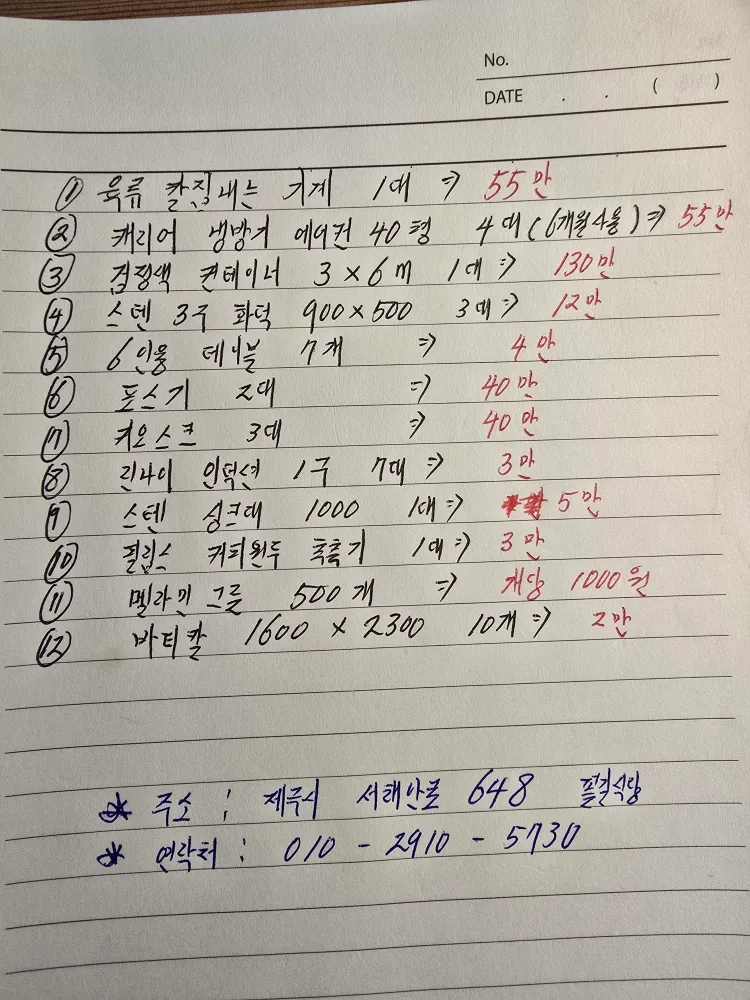 No.
DATE . . ( )
① 육류 칼집내는 기계 1대 => 55만
② 캐리어 냉방기 에어컨 40평 4대 (6개월사용) => 55만
③ 검정색 컨테이너 3×6m 1대 => 130만
④ 스텐 3구 화덕 900×500 3대 => 12만
⑤ 6인용 테이블 7개 => 4만
⑥ 포스기 2대 => 40만
⑦ 키오스크 3대 => 40만
⑧ 린나이 인덕션 1구 7대 => 3만
⑨ 스텐 싱크대 1000 1대 => 5만
⑩ 필립스 커피원두 축출기 1대 => 3만
⑪ 멜라민 그릇 500개 => 개당 1000원
⑫ 바티칼 1600 × 2300 10개 => 2만
* 주소 : 제주시 서해안로 648
* 연락처 : 010 - 2910 - 5730